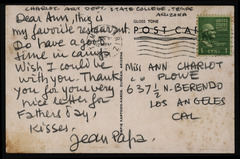 CHARLOT, ART DEPT. STATE COLLEGE, TEMPE
ARIZONA
Dear Ann, this is
my favorite restaurant.
Do have a good
time in camp.
Wish I could be
with you. Thank
you for your very
nice letter for
Fathers day,
Kisses,
Jean Papa.
POST CARD
Miss ANN CHARLOT
c/o PLOWE
637½ N. BERENDO
LOS ANGELES
CAL